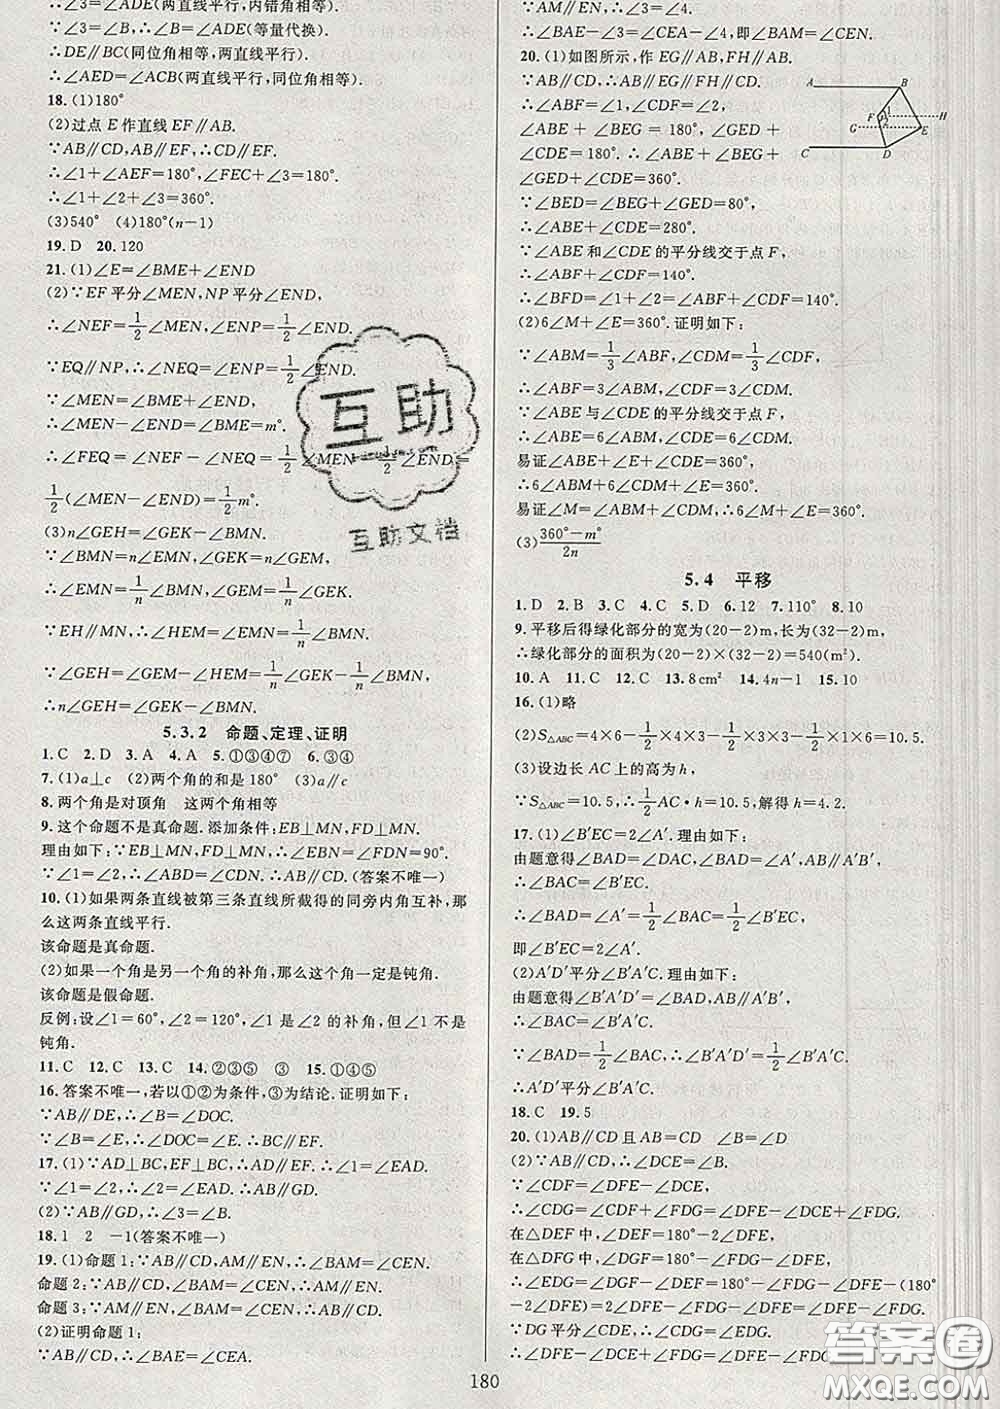 ∵DE∥BC(两直线平行,内错角相等).
∴∠3=∠B,∴∠B=∠ADE(等量代换).
∴DE∥BC(同位角相等,两直线平行).
∴∠AED=∠ACB(两直线平行,同位角相等).
18.(1)180°
(2)过点E作直线EF∥AB.
∵AB∥CD,AB∥EF,∴CD∥EF.
∴∠1+∠AEF=180°,∠FEC+∠3=180°.
∴∠1+∠2+∠3=360°.
(3)540° (4)180°(n-1)
19.D 20.120
21.(1)∠E=∠BME+∠END
(2)∵EF平分∠MEN,NP平分∠END,
∴∠NEF=1/2∠MEN,∠ENP=1/2∠END.
∵EQ∥NP,∴∠NEQ=∠ENP=1/2∠END.
∵∠MEN=∠BME+∠END,
∴∠MEN-∠END=∠BME=m°.
∴∠FEQ=∠NEF-∠NEQ=1/2∠MEN-1/2∠END=
1/2(∠MEN-∠END)=1/2m°.
(3)n∠GEH=∠GEK-∠BMN.
∵∠BMN=n∠EMN,∠GEK=n∠GEM,
∴∠EMN=1/n∠BMN,∠GEM=1/n∠GEK.
∵EH∥MN,∴∠HEM=∠EMN=1/n∠BMN.
∵∠GEH=∠GEM-∠HEM=1/n∠GEK-1/n∠BMN,
∴n∠GEH=∠GEK-∠BMN.
5.3.2 命题、定理、证明
1.C 2.D 3.A 4.A 5.①③④⑦ 6.③④
7.(1)a⊥c (2)两个角的和是180° (3)a∥c
8.两个角是对顶角 这两个角相等
9.这个命题不是真命题.添加条件:EB⊥MN,FD⊥MN.
理由如下:∵EB⊥MN,FD⊥MN,∴∠EBN=∠FDN=90°.
∵∠1=∠2,∴∠ABN=∠CDN.∴AB∥CD.(答案不唯一)
10.(1)如果两条直线被第三条直线所截得的同旁内角互补,那
么这两条直线平行.
该命题是真命题.
(2)如果一个角是另一个角的补角,那么这个角一定是钝角.
该命题是假命题.
反例:设∠1=60°,∠2=120°,∠1是∠2的补角,但∠1不是
钝角.
11.C 12.C 13.C 14.②③⑤ ③ 15.①③④⑤
16.答案不唯一,若以①②为条件,③为结论.证明如下:
∵AB∥DE,∴∠B=∠DOC.
∵∠B=∠E,∴∠DOC=∠E.∴BC∥EF.
17.(1)∵AD⊥BC,EF⊥BC,∴AD∥EF.∴∠1=∠EAD.
∵∠1=∠2,∴∠2=∠EAD.∴AB∥GD.
(2)∵AB∥GD,∴∠3=∠B.
18.1 2 -1(答案不唯一)
19.(1)命题1:∵AB∥CD,AM∥EN,∴∠BAM=∠CEN.
命题2:∵AB∥CD,∠BAM=∠CEN,∴AM∥EN.
命题3:∵AM∥EN,∠BAM=∠CEN,∴AB∥CD.
(2)证明命题1:
∵AB∥CD,∴∠BAE=∠CEA.
∵AM∥EN,∴∠3=∠4.
∴∠BAE-∠3=∠CEA-∠4,即∠BAM=∠CEN.
20.(1)如图所示,作EG∥AB,FH∥AB.
∵AB∥CD,∴AB∥EG∥FH∥CD.
∴∠ABF=∠1,∠CDF=∠2,
∠ABE+∠BEG=180°,∠GED+
∠CDE=180°.∴∠ABE+∠BEG+
∠GED+∠CDE=360°.
∵∠BED=∠BEG+∠GED=80°,
∴∠ABE+∠CDE=280°.
∵∠ABE和∠CDE的平分线交于点F,
∴∠ABF+∠CDF=140°.
∴∠BFD=∠1+∠2=∠ABF+∠CDF=140°.
(2)6∠M+∠E=360°.证明如下:
∵∠ABM=1/3∠ABF,∠CDM=1/3∠CDF,
∴∠ABF=3∠ABM,∠CDF=3∠CDM.
∵∠ABE与∠CDE的平分线交于点F,
∴∠ABE=6∠ABM,∠CDE=6∠CDM.
易证∠ABE+∠E+∠CDE=360°,
∴6∠ABM+6∠CDM+∠E=360°.
易证∠M=∠ABM+∠CDM,∴6∠M+∠E=360°.
(3)(360°-m°)/2n
A B F 1 2 H G E C D
5.4 平移
1.D 2.B 3.C 4.C 5.D 6.12 7.110° 8.10
9.平移后得绿化部分的宽为(20-2)m,长为(32-2)m,
∴绿化部分的面积为(20-2)×(32-2)=540(m²).
10.A 11.C 12.C 13.8cm² 14.4n-1 15.10
16.(1)略
(2)S△ABC=4×6-1/2×4×3-1/2×2×3-1/2×1×6=10.5.
(3)设边长AC上的高为h,
∵S△ABC=10.5,∴1/2AC·h=10.5,解得h=4.2.
17.(1)∠B′EC=2∠A′.理由如下:
由题意得∠BAD=∠DAC,∠BAD=∠A′,AB∥A′B′,
∴∠BAC=∠B′EC.
∴∠BAD=∠A′=1/2∠BAC=1/2∠B′EC,
即∠B′EC=2∠A′.
(2)A′D′平分∠B′A′C.理由如下:
由题意得∠B′A′D′=∠BAD,AB∥A′B′,
∴∠BAC=∠B′A′C.
∵∠BAD=1/2∠BAC,∴∠B′A′D′=1/2∠B′A′C.
∴A′D′平分∠B′A′C.
18.C 19.5
20.(1)AB∥CD且AB=CD ∠B=∠D
(2)∵AB∥CD,∴∠DCE=∠B.
∵∠CDF=∠DFE-∠DCE,
∴∠CDG=∠CDF+∠FDG=∠DFE-∠DCE+∠FDG.
在△DEF中,∠DEF=180°-2∠DFE,
在△DFG中,∠DGF=180°-∠FDG-∠DFE,
∴∠EDG=∠DGF-∠DEF=180°-∠FDG-∠DFE-(180°
-2∠DFE)=2∠DFE-∠FDG-∠DFE=∠DFE-∠FDG.
∵DG平分∠CDE,∴∠CDG=∠EDG.
∴∠DFE-∠DCE+∠FDG=∠DFE-∠FDG.
180
互助
互助文档
答案圈
MXQE.COM